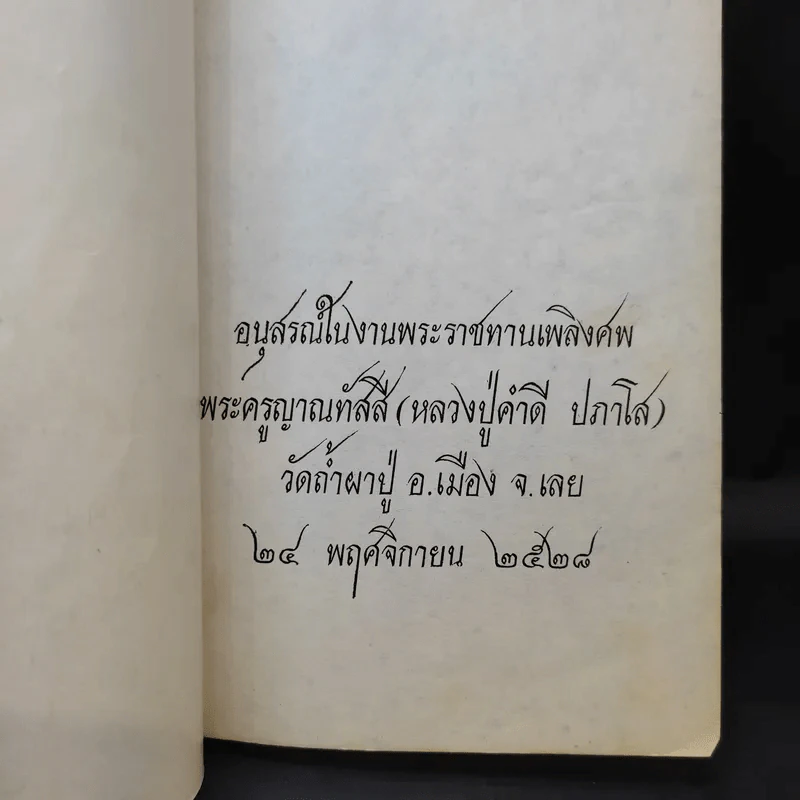 อนุสรณ์ในงานพระราชทานเพลิงศพ
พระครูญาณทัสสี (หลวงปู่คำดี ปภาโส)
วัดถ้ำผาปู่ อ.เมือง จ.เลย
๒๔ พฤศจิกายน ๒๕๒๘